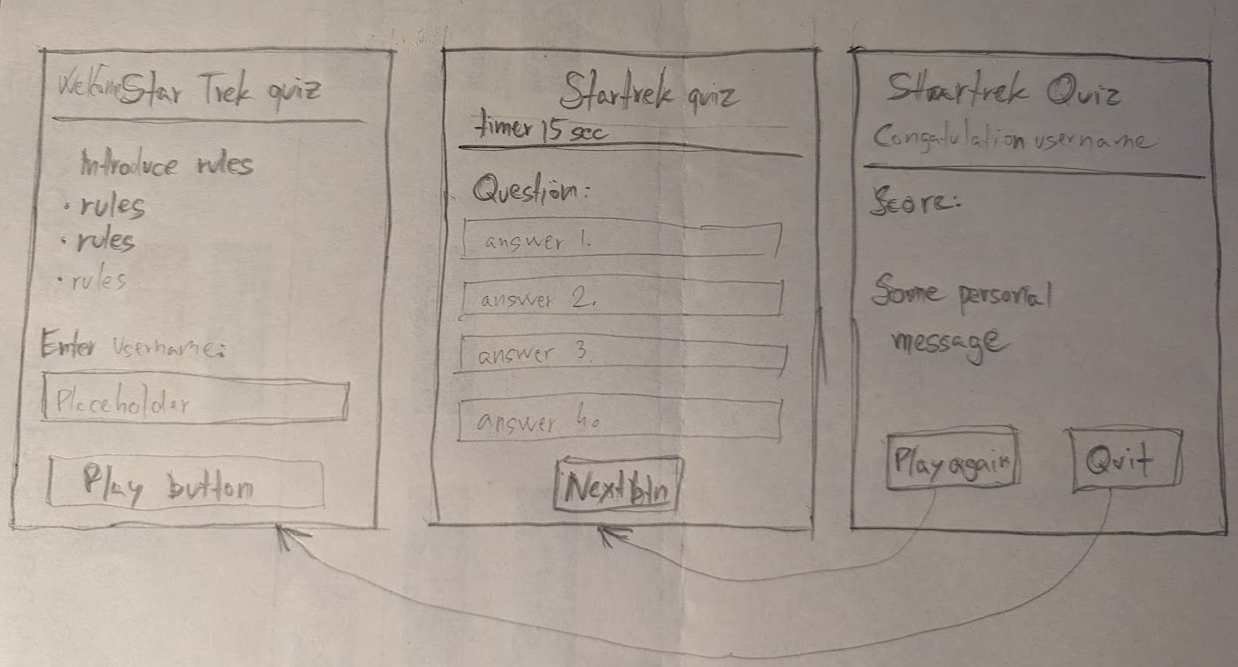 Welcome Star Trek quiz
Introduce rules
• rules
• rules
• rules
Enter username:
Placeholder
Play button
Startrek quiz
timer 15 sec
Question:
answer 1.
answer 2.
answer 3.
answer 4.
Next btn
Startrek Quiz
Congatulation username
Score:
Some personal
message
Play again
Quit